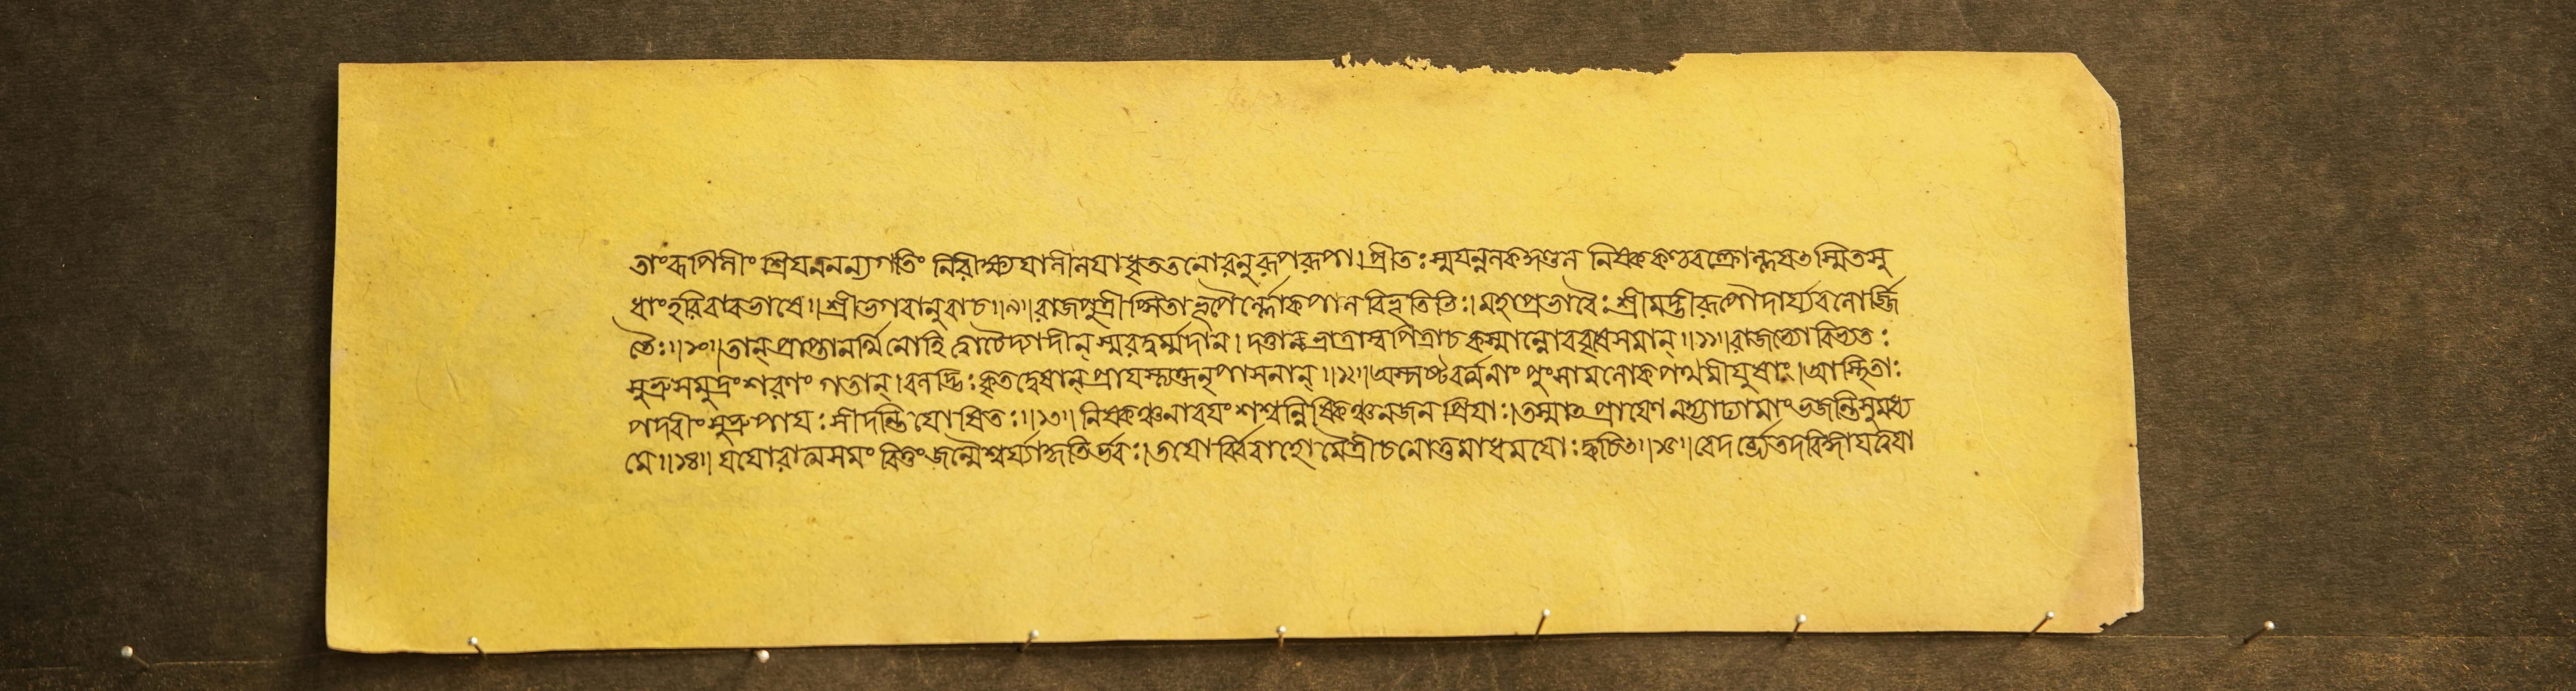 তাংরূপিনীং শ্রিয়মনন্যগতিং নিরীক্ষ্যযালীলযাধৃততনোরনুরূপরূপা।প্রীতঃস্ময়ন্নলককুণ্ডল নিষ্ককণ্ঠবক্ত্রোল্লসৎস্মিতসু
ধাংহরিরাবভাষে॥শ্রীভগবানুবাচ॥৯॥রাজপুত্রীপ্সিতাভূপৈর্ল্লোকপালবিভূতিভিঃ।মহাপ্রভাবৈঃশ্রীমদ্ভীরূপৌদার্য্যবলোর্জ্জি
তৈঃ॥১০॥তান্প্রাপ্তানর্থিনোহিত্বাচৈদ্যাদীন্স্মরদুর্ম্মদান।দত্তাভ্রাত্রাস্বপিত্রাচকস্মান্নোববৃষেসমান্॥১১॥রাজভ্যোবিভ্যতঃ
সুভ্রুসমুদ্রংশরণং গতান্।বলদ্ভিঃকৃতদ্বেষান্প্রাযস্ত্যক্তনৃপাসনান্॥১২॥অস্পষ্টবর্ত্মনাং পুংসামলোকপথমীয়ুষাং।আস্থিতাঃ
পদবীংসুভ্রুপ্রাযঃসীদন্তিযোষিতঃ॥১৩॥ নিষ্কিঞ্চনাবযংশশ্বন্নিষ্কিঞ্চনজন প্রিযাঃ।তস্মাৎ প্রাযেণ নহ্যাঢ্যামাংভজন্তিসুমধ্য
মে॥১৪॥ যযোরাত্মসমং বিত্তংজন্মৈশ্বর্য্যাকৃতির্ভবঃ।তযোর্ব্বিবাহোমৈত্রীচনোত্তমাধমযোঃক্বচিৎ॥১৫॥বৈদর্ভ্যেতদবিজ্ঞাযত্বযা